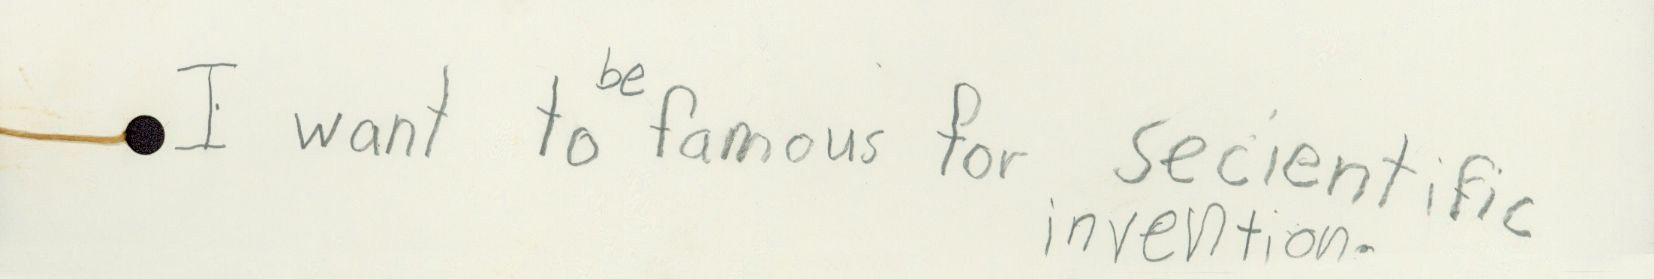 I want to be famous for secientific
invention.